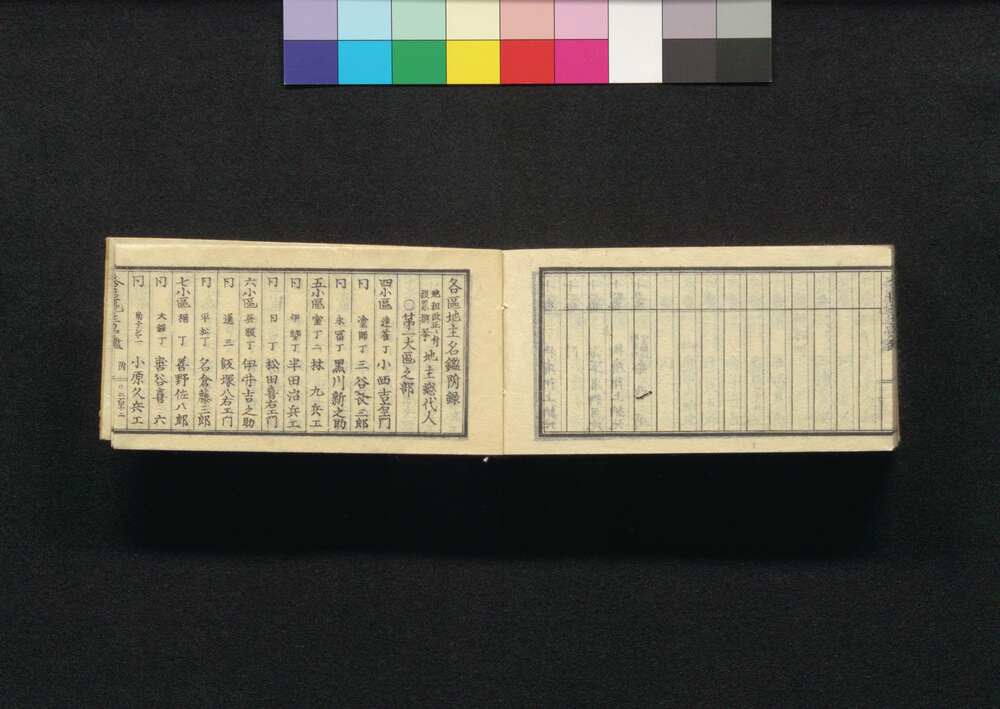 各區地主名鑑附録
地租改正ニ付
投票撰挙 地主總代人
○第一大區之部
四小區 蓮雀丁 小西吉右エ門
同 塗師丁 三谷長三郎
同 永冨丁 黒川新之助
五小區 室丁二 林九兵エ
同 伊勢丁 半田治兵エ
同 同丁 松田喜右エ門
六小區 呉服丁 伊守吉之助
同 通三 飯塚八右エ門
同 平松丁 名倉藤三郎
七小區 丁 善野佐八郎
同 大鋸丁 喜谷喜六
同 小原久兵エ